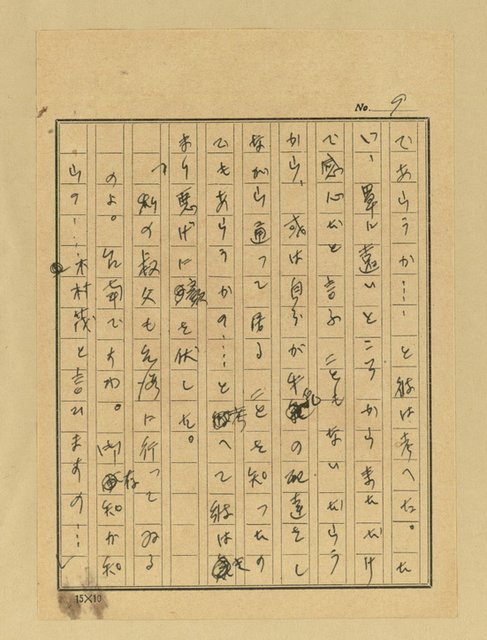 No. 9
であらうか……と彼は考へた。た
い、單に遠いところから来ただけ
で感心だと言ふこともないだらう
から、或は自分が牛乳の配達をし
ながら通つて居ることを知つたの
でもあらうかの……と考へて彼はき
まり悪げに顔を伏した。
「私の叔父も台湾に行つてゐる
のよ。台南ですわ。御存知か知
らの……木村茂と言ひますの……
15×10